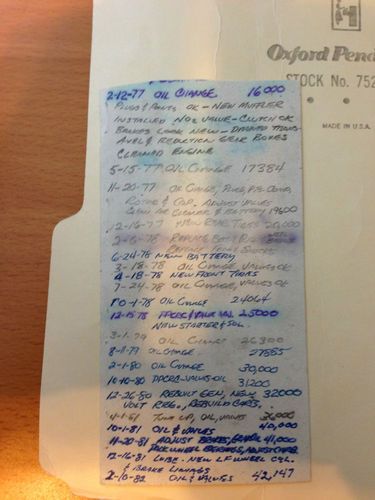 Oxford Pend
STOCK No. 752
MADE IN U.S.A.
2-12-77 OIL CHANGE 16000
PLUGS & POINTS OK - NEW MUFFLER
INSTALLED NO 2 VALVE - CLUTCH OK
BRAKES LOOK NEW - DRAINED TRANS-
AXEL & REDUCTION GEAR BOXES
CLEANED ENGINE
5-15-77 OIL CHANGE 17384
11-20-77 OIL CHANGE, PLUGS, PTS, COND,
ROTOR & CAP. ADJUST VALVES
AIR CLEANER & BATTERY 19600
12-16-77 REAR TIRES 20,000
2-6-78
6-24-78 NEW BATTERY
3-18-78 OIL CHANGE, VALVES OK
4-18-78 NEW FRONT TIRES
7-24-78 OIL CHANGE, VALVES OK
10-1-78 OIL CHANGE 24064
12-15-78 25000
NEW STARTER & SOL
3-1-79 OIL CHANGE 26300
8-11-79 OIL CHANGE 27885
2-1-80 OIL CHANGE 30,000
10-10-80 VALVES-OIL 31200
12-26-80 REBUILT GEN, NEW 32000
VOLT REG., REBUILD CARB.
4-1-81 TUNE UP, OIL, VALVES 36,000
10-1-81 OIL & VALVES 40,000
11-20-81 ADJUST BRAKES, 41,000
PACK WHEEL BEARINGS,
12-16-81 LUBE. NEW LF WHEEL CYL.
& BRAKE LININGS
2-10-82 OIL & VALVES 42,147